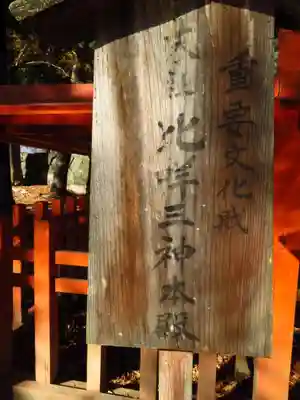 重要文化財
末社比咩三神本殿